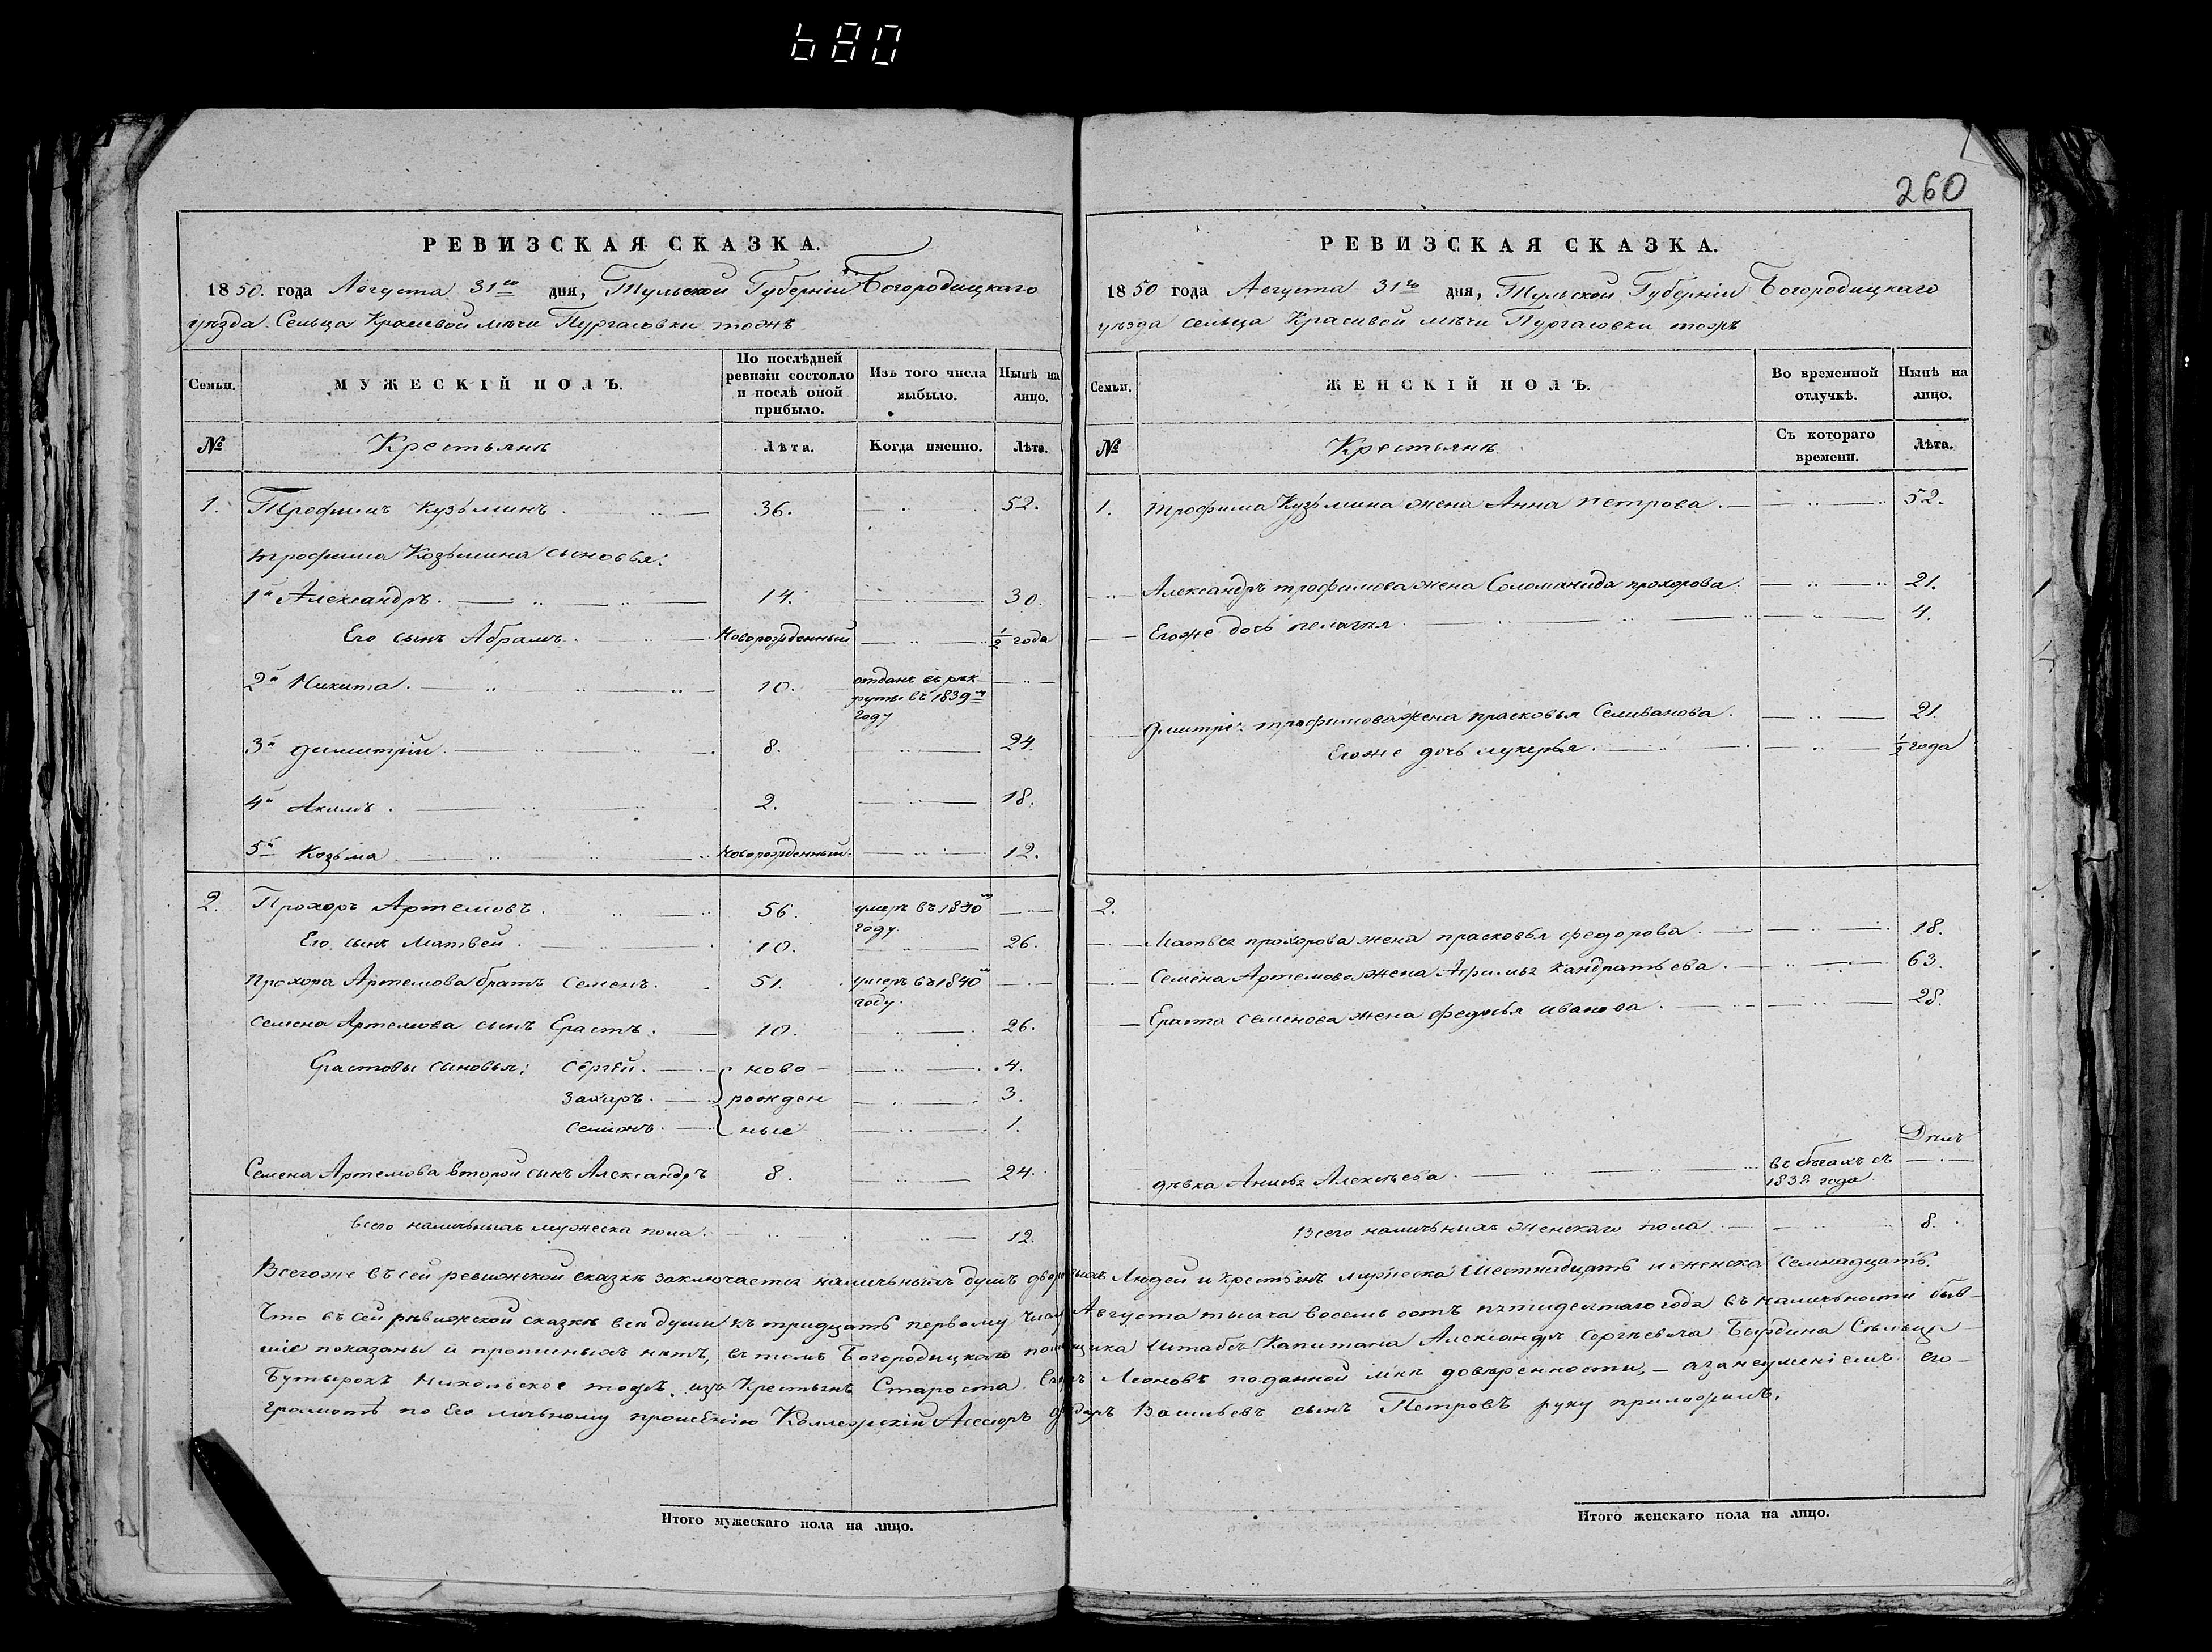 680
260
РЕВИЗСКАЯ СКАЗКА.
1850. года Августа 31го дня, Тульской Губерніи Богородицкаго
уѣзда Сельца Красивой мѣчи Пургасовки тожъ
Семьи.
МУЖЕСКІЙ ПОЛЪ.
По послѣдней ревизіи состояло и послѣ оной прибыло.
Изъ того числа выбыло.
Нынѣ на лицо.
№ Крестьянѣ Лѣта. Когда именно. Лѣта.
1. Трофимъ Кузьминъ. 36. 52.
трофима Козьмина сыновья:
1й Александръ. 14. 30.
Его сынъ Абрамъ. Новорожденный ½ года
2й Никита. 10. отданъ въ рек
руты въ 1839м
году
3й димитрій. 8. 24.
4й Акимъ. 2. 18.
5й Козьма Новорожденный. 12.
2. Прохоръ Артемовъ. 56. умеръ въ 1840м
году.
Его сынъ Матвей. 10. 26.
Прохора Артемова братъ Семенъ. 51. умеръ въ 1840м
году.
Семена Артемова сынъ Ерастъ. 10. 26.
Ерастовы сыновья: Сергей. ново 4.
Захаръ. рожден 3.
Семіонъ. ные 1.
Семена Артемова второй сынъ Александръ 8. 24.
Всего наличныхъ мужеска пола. 12.
РЕВИЗСКАЯ СКАЗКА.
1850 года Августа 31го дня, Тульской Губерніи Богородицкаго
уѣзда сельца Красивой мѣчи Пургасовки тожъ
Семьи.
ЖЕНСКІЙ ПОЛЪ.
Во временной отлучкѣ.
Нынѣ на лицо.
№ Крестьянѣ. Съ котораго времени. Лѣта.
1. трофима Кузьмина жена Анна петрова. 52.
Александръ трофимова жена Соломанида прохорова. 21.
Егоже дочь пелагѣя. 4.
дмитрія трофимова жена прасковья Селиванова. 21.
Егоже дочь лукерья. ½ года
2.
Матвея прохорова жена прасковья федорова. 18.
Семена Артемова жена Кандратьева. 63.
Ераста Семенова жена федосья иванова 28.
дѣвка Анисья Алексѣева. въ бѣгахъ съ
1838 года.
Всего наличныхъ женскаго пола 8.
Всегоже въ сей ревижской сказкѣ заключается наличныхъ душъ дворовыхъ Людей и Крестьянъ мужеска Шестнадцать и женска Семнадцать.
Что въ сей рѣвижской сказкѣ всѣ души къ тридцать первому числу Августа тысяча восемь сотъ пятидесятаго года въ наличности быв-
шіе показаны и прописныхъ нѣтъ, въ томъ Богородицкаго помѣщика Штабсъ Капитана Александръ Сергѣевича Сѣльца
Бутырокъ Никольское тожъ. изъ Крестьянъ Староста Леоновъ поданной мнѣ довѣренности, — а за неумѣніемъ его
грамотѣ по Его личьному прошѣнію Коллежскій Ассеоръ федоръ Васильевъ сынъ Петровъ руку приложилъ.
Итого мужескаго пола на лицо.
Итого женскаго пола на лицо.